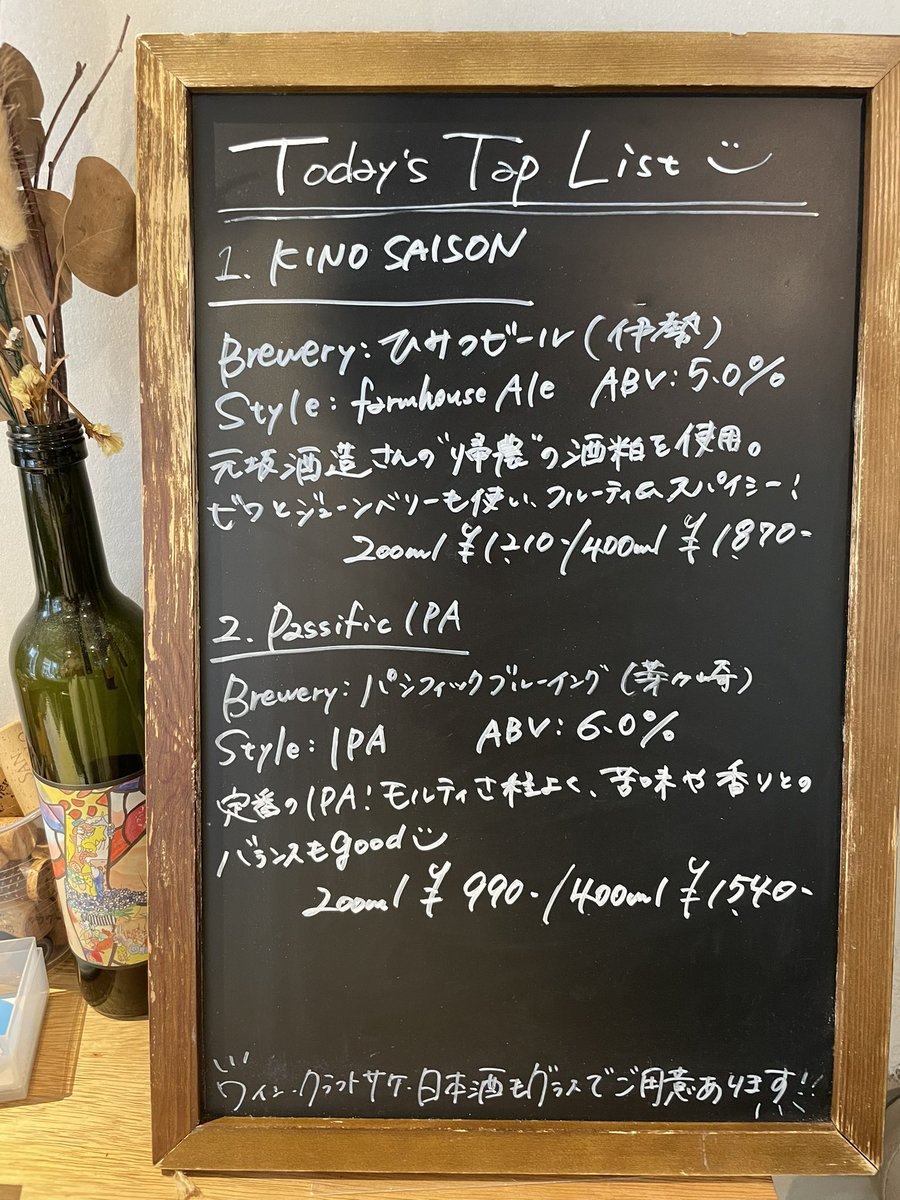 Today's Tap List
1. KINO SAISON
Brewery: ひみつビール (伊勢)
Style: farmhouse Ale ABV: 5.0%
元坂酒造さんの"帰農"の酒粕を使用。
ビワとジューンベリーも使い、フルーティ&スパイシー!
200ml ¥1,210-/400ml ¥1,870-
2. Passific IPA
Brewery: パシフィックブルーイング (茅ヶ崎)
Style: IPA ABV: 6.0%
定番のIPA! モルティさ程よく、苦味や香りとの
バランスもgood
200ml ¥990-/400ml ¥1,540-
ワイン・クラフトサケ・日本酒もグラスでご用意あります!!